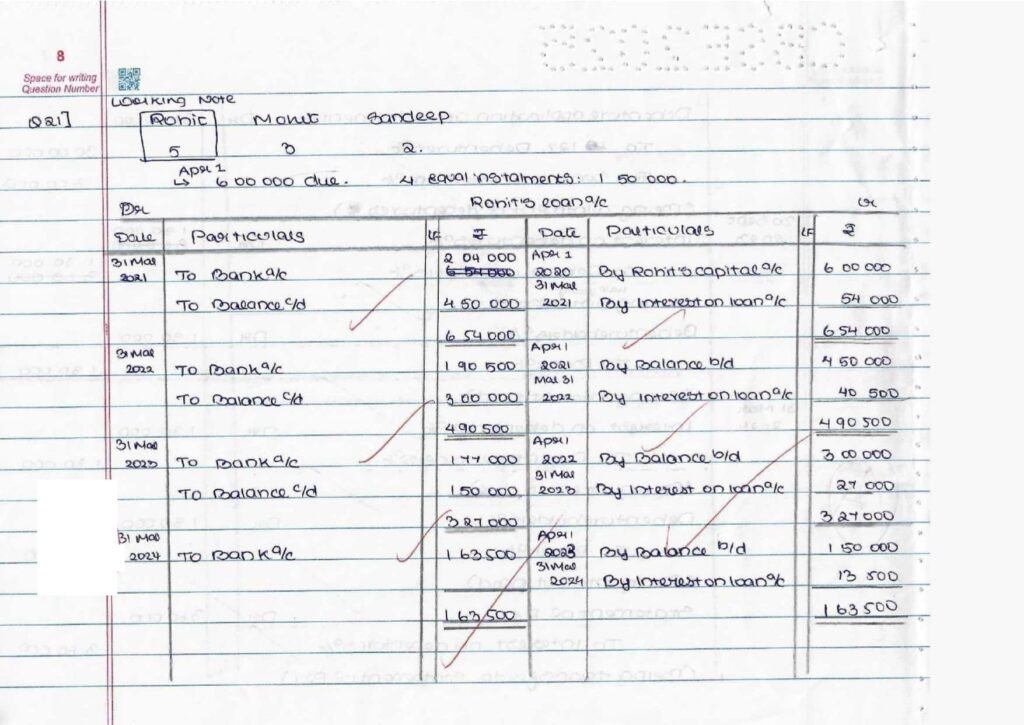 8
Space for writing
Question Number
Working Note
Q21] Rohit Mohit Sandeep
5 3 2.
April 1
↳ 6 00 000 due. 4 equal instalments: 1 50 000.
Dr Rohit's loan a/c Cr
Date Particulars LF ₹ Date Particulars LF ₹
31 Mar 2 04 000 April 1
2021 To Bank a/c 6 54 000 2020 By Rohit's capital a/c 6 00 000
31 Mar
To Balance c/d 4 50 000 2021 By Interest on loan a/c 54 000
6 54 000 6 54 000
31 Mar April 1
2022 To Bank a/c 1 90 500 2021 By Balance b/d 4 50 000
Mar 31
To Balance c/d 3 00 000 2022 By Interest on loan a/c 40 500
4 90 500 4 90 500
31 Mar April 1
2023 To Bank a/c 1 77 000 2022 By Balance b/d 3 00 000
31 Mar
To Balance c/d 1 50 000 2023 By Interest on loan a/c 27 000
3 27 000 3 27 000
31 Mar April 1
2024 To Bank a/c 1 63 500 2023 By Balance b/d 1 50 000
31 Mar
2024 By Interest on loan a/c 13 500
1 63 500 1 63 500